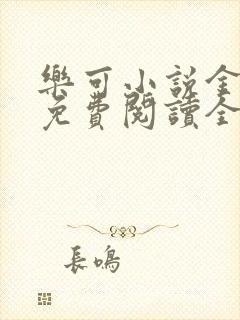 樂可小說全
免費閱讀全
長鳴